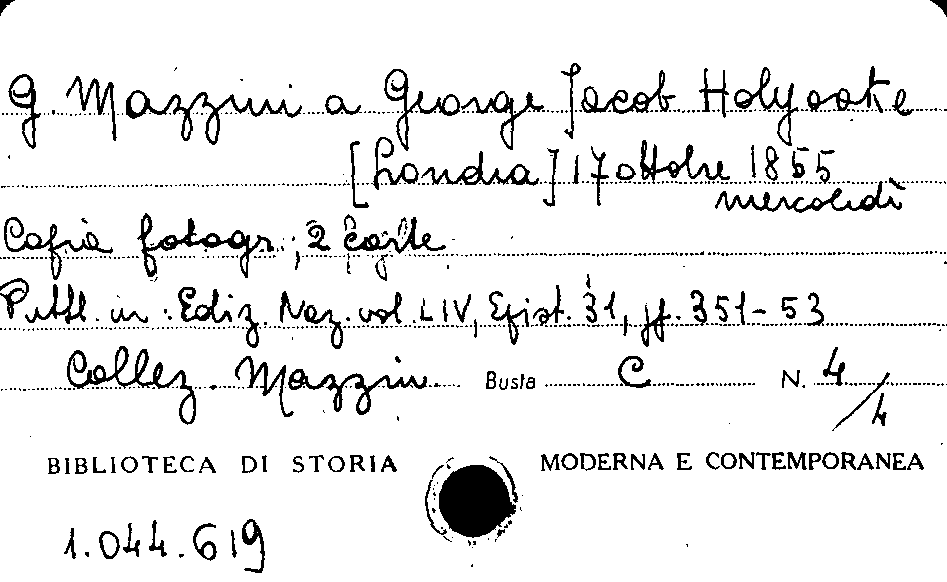 G. Mazzini a George Jacob Holyoake
[Londra] 17 ottobre 1855
mercoledì
Copia fotogr.; 2 carte
Pubbl. in: Ediz. Naz. vol. LIV, Epist. 31, pp. 351-53
Collez. Mazzini Busta C N. 4/4
BIBLIOTECA DI STORIA MODERNA E CONTEMPORANEA
1.044.619